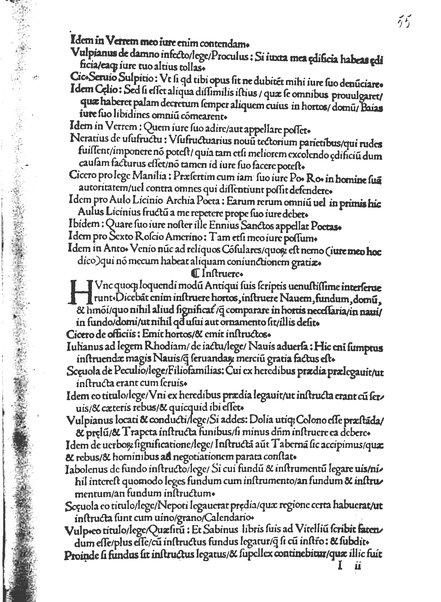 55
Idem in Verrem meo iure enim contendam.
Vulpianus de damno infecto/lege/Proculus: Si iuxta mea ędificia habeas ędi
ficia/eaq; iure tuo altius tollas.
Cic. Seruio Sulpitio: Vt si qd tibi opus sit ne dubitē mihi iure suo denūciare.
Idem Cęlio: Sed si esset aliqua dissimilis istius / quæ se omnibus prouulgaret/
quæ haberet palam decretum semper aliquem cuius in hortos / domū / Baias
iure suo libidines omniū cōmearent.
Idem in Verrem: Quem iure suo adire/aut appellare posset.
Neratius de usufructu: Vsufructuarius nouū tectorium parietibus/qui rudes
fuissent/imponere nō potest/ quia tam etsi meliorem excolendo ędificiū dum
causam facturus esset/nō tamen id iure suo facere potest.
Cicero pro lege Manilia: Præsertim cum iam suo iure Po. Ro. in homine suā
autoritatem/uel contra omnes qui dissentiunt possit defendere.
Idem pro Aulo Licinio Archia Poeta: Earum rerum omniū uel in primis hic
Aulus Licinius fructū a me repetere prope suo iure debet.
Ibidem: Quare suo iure noster ille Ennius Sanctos appellat Poetas.
Idem pro Sexto Roscio Amerino: Tam etsi meo iure possum.
Idem in Anto. Venio nūc ad reliquos Cōsulares/quoȝ est nemo (iure meo hoc
dico) qui nō mecum habeat aliquam coniunctionem gratiæ.
¶ Instruere.
HVnc quoq; loquendi modū Antiqui suis scriptis uenustissime interserue
runt. Dicebāt enim instruere hortos, instruere Nauem, fundum, domū,
& hmōi/quo nihil aliud significāt/ q̄ comparare in hortis necessaria/in naui/
in fundo/domi/ut nihil qd usui aut ornamento sit/illis desit.
Cicero de officiis: Emit hortos/& emit instructos.
Iulianus ad legem Rhodiam/ de iactu/lege/ Nauis aduersa: Hic eni sumptus
instruendæ magis Nauis/q̄ seruandaȝ merciū gratia factus est.
Scęuola de Peculio/lege/Filiofamilias: Cui ex heredibus prædia prælegauit/ut
instructa erant cum seruis.
Idem eo titulo/lege/Vni ex heredibus prædia legauit/ut instructa erant cū ser
uis/& cæteris rebus/& quicquid ibi esset.
Vulpianus locati & conducti/lege/Si addes: Dolia utiq; Colono esse præstāda/
& pręlū/& Trapeta instructa funibus/si minus dn̄m instruere ea debere.
Idem de uerboȝ significatione/lege/Instructā aūt Tabernā sic accipimus/quæ
& rebus/& hominibus ad negotiationem parata constat.
Iabolenus de fundo instructo/lege/ Si cui fundū & instrumentū legare uis/ni-
hil interest quomodo leges fundum cum instrumento/an fundum & instru-
mentum/an fundum instructum.
Scęuola eo titulo/lege/Nepori legauerat prędia/quæ regione certa habuerat/ut
instructa sunt cum uino/grano/Calendario.
Vulp. eo titulo/lege/Quæsitū: Et Sabinus libris suis ad Vitelliū scribit faten-
dum esse/plus esse/cū instructus fundus legatur/q̄ si cū instro: & subdit.
Proinde si fundus sit instructus legatus/& supellex continebitur/quæ illic fuit
I ii